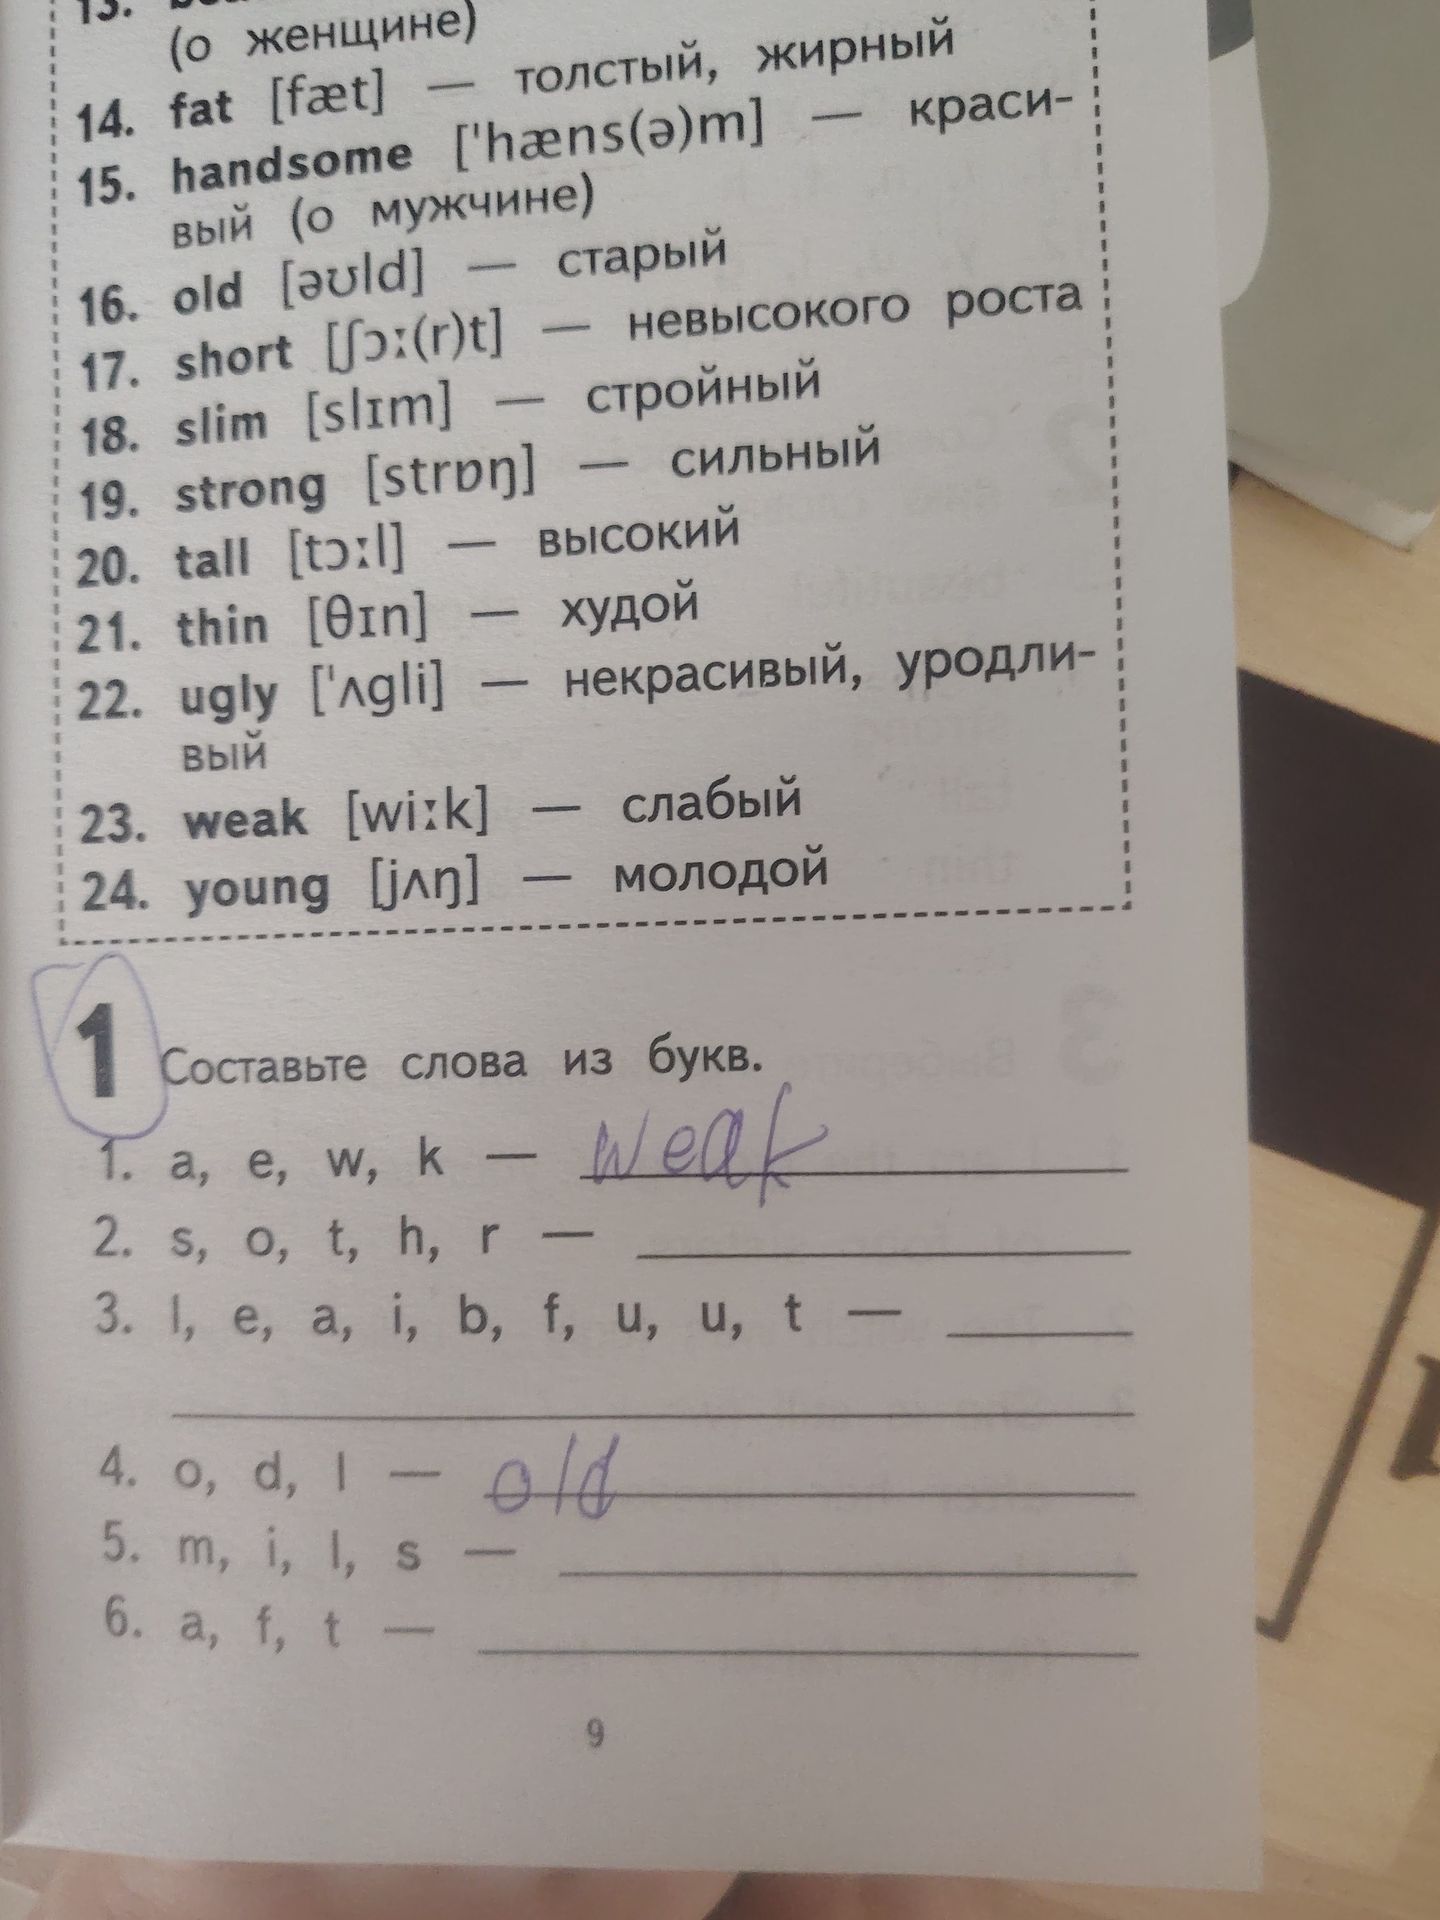 13.
(о женщине)
14. fat [fæt] — толстый, жирный
15. handsome [ˈhæns(ə)m] — краси-
вый (о мужчине)
16. old [əʊld] — старый
17. short [ʃɔː(r)t] — невысокого роста
18. slim [slɪm] — стройный
19. strong [strɒŋ] — сильный
20. tall [tɔːl] — высокий
21. thin [θɪn] — худой
22. ugly [ˈʌgli] — некрасивый, уродли-
вый
23. weak [wiːk] — слабый
24. young [jʌŋ] — молодой
1 Составьте слова из букв.
1. a, e, w, k — weak
2. s, o, t, h, r —
3. l, e, a, i, b, f, u, u, t —
4. o, d, l — old
5. m, i, l, s —
6. a, f, t —
9